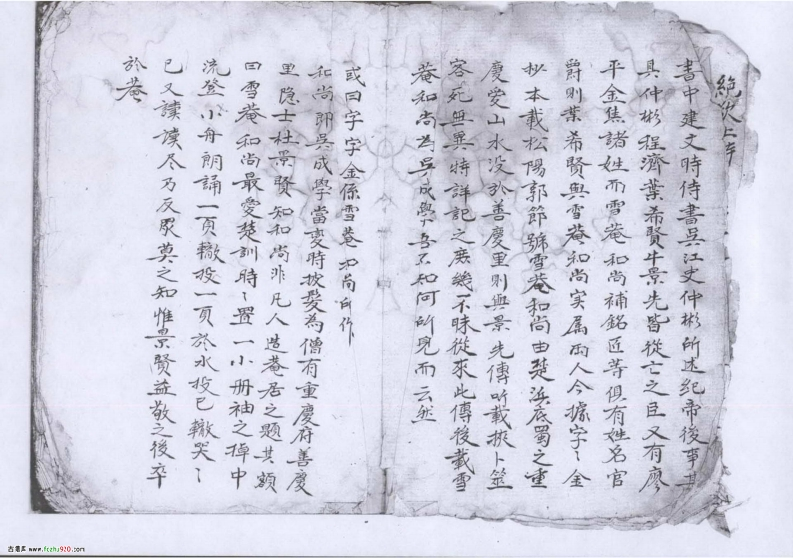 絶火上半
書中建文時侍書吳江史仲彬所述紀帝後事其
具仲彬程濟葉希賢牛景先皆從亡之臣又有廖
平金焦諸姓而雪菴和尚補鍋匠等俱有姓名官
爵則葉希賢與雪菴和尚实属兩人今據字〻金
抄本載松陽郭節號雪菴和尚由楚滇底蜀之重
慶愛山水没於善慶里則與景先傳所載挨卜筮
客死無異特詳記之庶幾不昧從來此傳後載雪
菴和尚為吳成學吾不知何所見而云然
或曰字字金係雪菴和尚所作
和尚即吳成學當変時披髮為僧有重慶府善慶
里隐士杜景賢知和尚非凡人造菴居之題其額
曰雪菴和尚最愛楚訓時〻置一小册袖之掉中
流登小舟朗誦一頁輙投一頁於水投已輙哭〻
已又讀讀尽乃反眾莫之知惟景賢益敬之後卒
於菴
古籍库 www.fczhu920.com